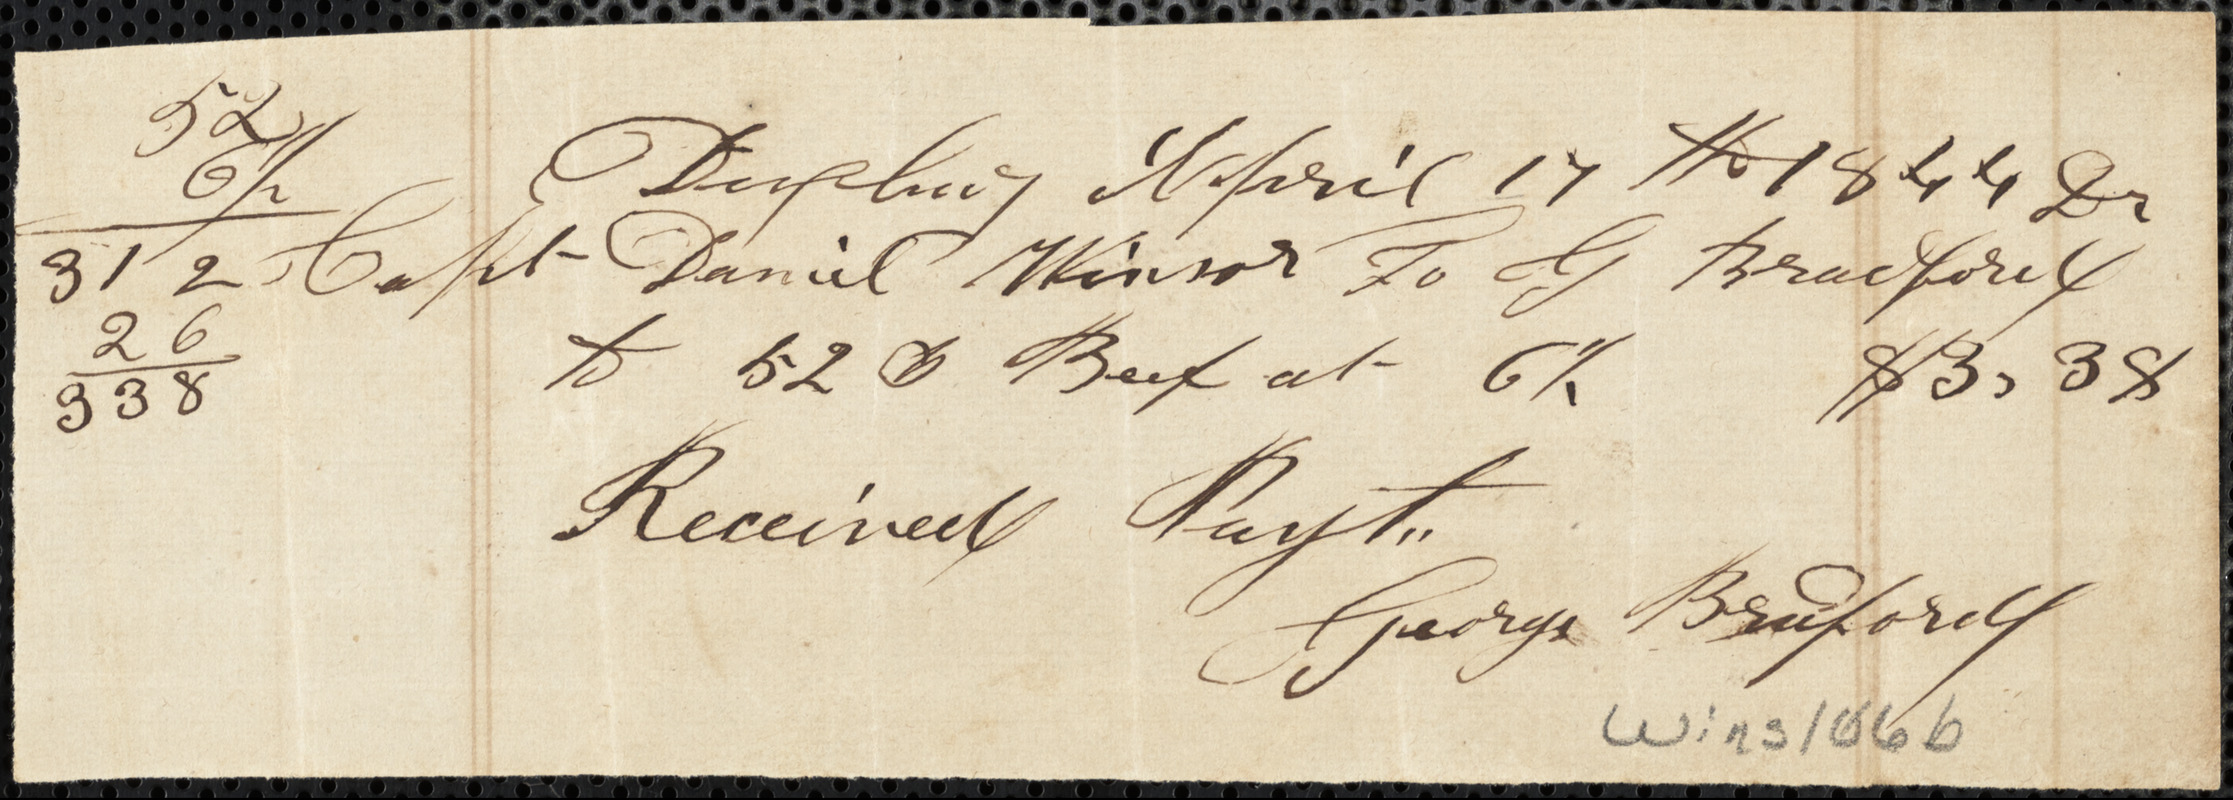 52
6½
312
26
338
Duxbury April 17th 1844 Dr
Capt Daniel Winsor To G Bradford
to 52 lb Beef at 6½ $3,38
Received Payt.
George Bradford
Wins1866